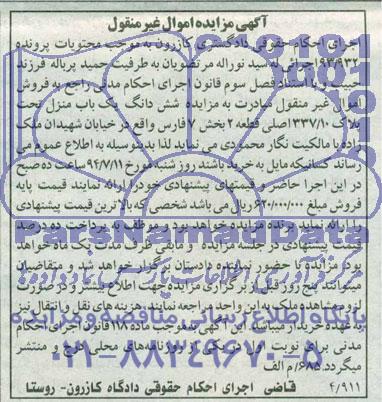 آگهی مزایده اموال غیر منقول
اجرای احکام حقوقی دادگستری کازرون به موجب محتویات پرونده
۹۳/۹۳۲ اجرائی له سید نوراله مرتضویان به طرفیت حمید پرباله فرزند
حبیب و با استناد فصل سوم قانون اجرای احکام مدنی راجع به فروش
اموال غیر منقول مبادرت به مزایده شش دانگ یک باب منزل تحت
پلاک ۳۳۷/۱۰ اصلی قطعه ۲ بخش ۷ فارس واقع در خیابان شهیدان ملک
زاده با مالکیت نگار محمودی می نماید لذا بدینوسیله به اطلاع عموم می
رساند کسانیکه مایل به خرید باشند روز شنبه مورخ ۹۴/۷/۱۱ ساعت ده صبح
در این اجرا حاضر و قیمتهای پیشنهادی خود را ارائه نمایند قیمت پایه
فروش مبلغ ۶۲۰/۰۰۰/۰۰۰ ریال می باشد شخصی که بالاترین قیمت پیشنهادی
را ارائه نماید برنده مزایده خواهد بود و موظف به پرداخت ده درصد
قیمت پیشنهادی در جلسه مزایده و مابقی ظرف مدت یک ماه خواهد
بود مزایده با حضور نماینده دادستان برگزار خواهد شد و متقاضیان
میتوانند پنج روز قبل از برگزاری مزایده جهت اطلاع بیشتر و در صورت
لزوم مشاهده ملک به این واحد مراجعه نمایند، هزینه های نقل و انتقال نیز
به عهده خریدار میباشد این آگهی به موجب ماده ۱۱۸ قانون اجرای احکام
مدنی برای نوبت اول در یکی از روزنامه های محلی طرح و منتشر
میگردد. ۶۸۵/م الف
۴/۹۱۱ قاضی اجرای احکام حقوقی دادگاه کازرون- روستا
پایگاه اطلاع رسانی مناقصه و مزایده
۰۲۱-۸۸۳۴۹۶۷۰-۵